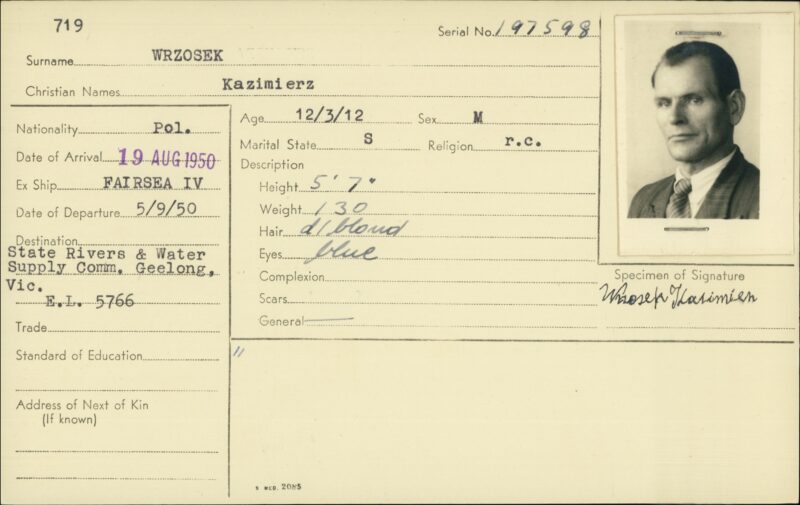 719
Serial No. 197598
Surname WRZOSEK
Christian Names Kazimierz
Nationality Pol.
Date of Arrival 19 AUG 1950
Ex Ship FAIRSEA IV
Date of Departure 5/9/50
Destination
State Rivers & Water
Supply Comm. Geelong,
Vic.
E.L. 5766
Trade
Standard of Education
Address of Next of Kin
(If known)
Age 12/3/12 Sex M
Marital State S Religion r.c.
Description
Height 5' 7"
Weight 130
Hair d/blond
Eyes blue
Complexion
Scars
General —
"
Specimen of Signature
Wrzosek Kazimierz
S MED. 2085